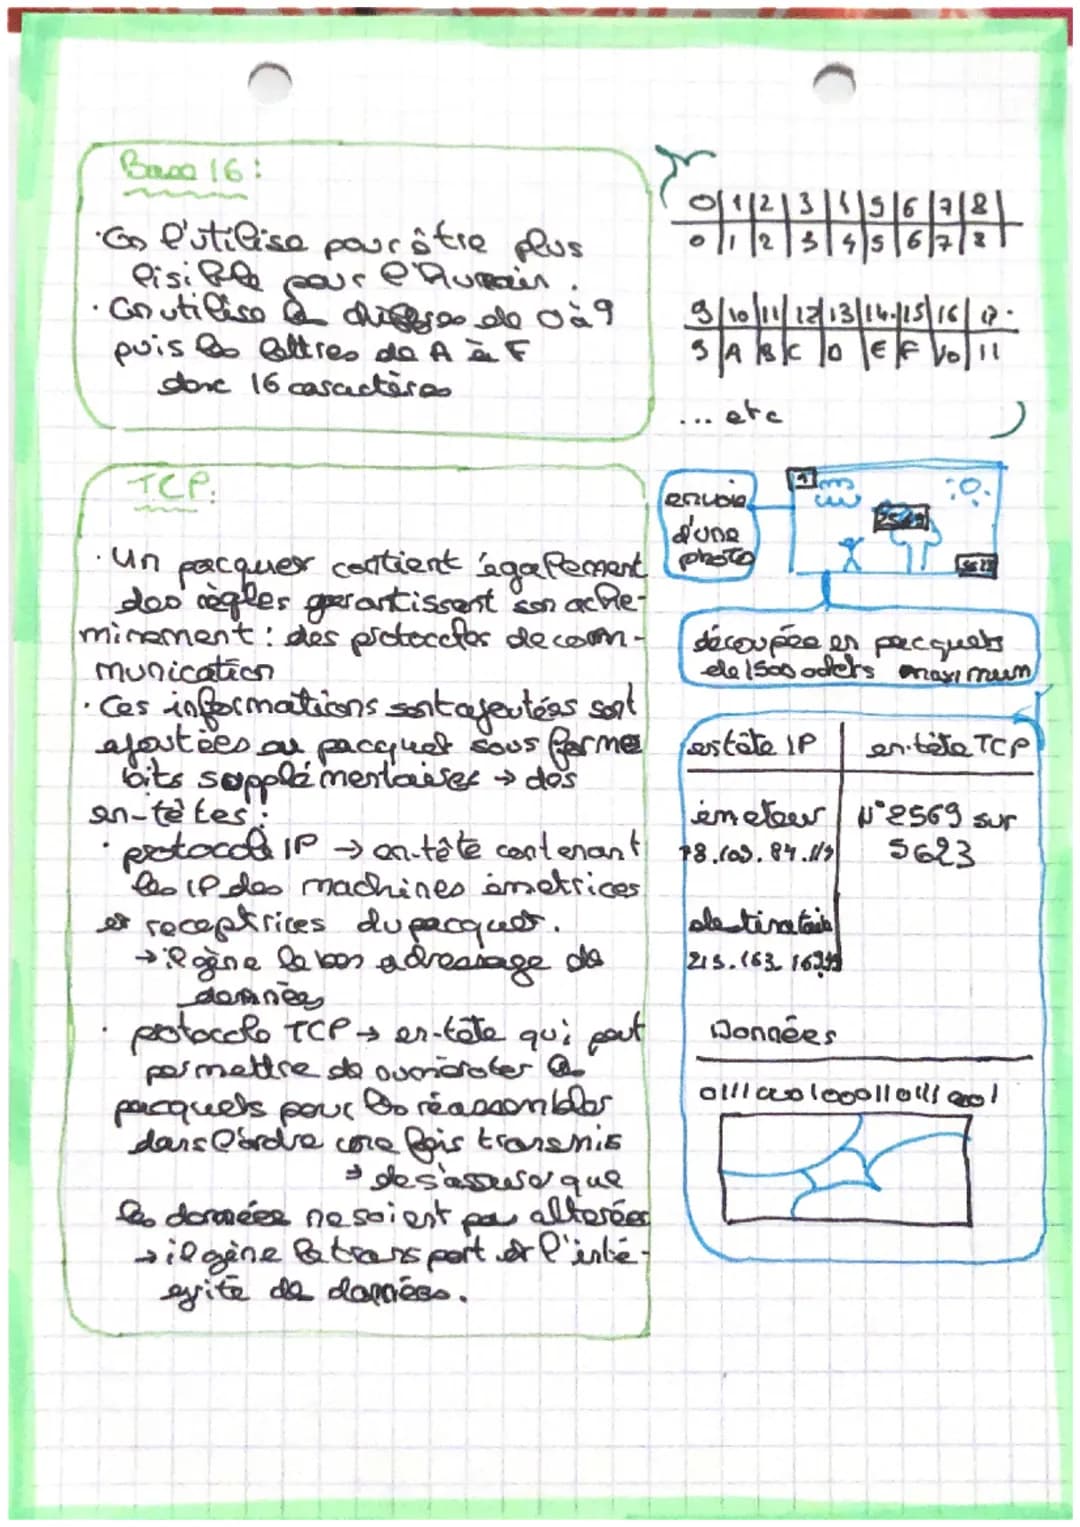 Base 16:
· On l'utilise pour être plus
lisible pour l'humain.
· On utilise le chiffres de 0 à 9
puis les lettres de A à F
donc 16 caractères
0|1|2|3|4|5|6|7|8|
0|1|2|3|4|5|6|7|8
9|10|11|12|13|14|15|16|17.
9|A|B|C|D|E|F|10|11
... etc
TCP:
· Un pacquer contient également
des règles garantissent son ache-
minement : des protocoles de com-
munication
· Ces informations sont ajoutées sont
ajoutées au pacquet sous forme
bits supplémentaires → des
en-têtes :
· protocole IP → en-tête contenant
les IP des machines émetrices
et receptrices du pacquet.
→ il gène le bon adressage de
données
· protocole TCP → en-tête qui peut
permettre de numéroter le
pacquets pour les réassembler
dans l'ordre une fois transmis
→ de s'assurer que
les données ne soient pas alterées
→ il gène le transport et l'inté-
grité de données.
envoie
d'une
photo
1
2569
5623
découpée en pacquets
de 1500 octets maximum
entête IP | en-tête TCP
émeteur | N°2569 sur
78.109.84.119 | 5623
destinataire
213.163.
Données